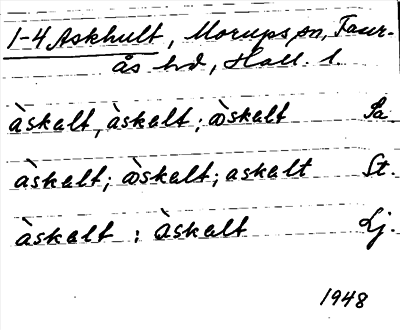 1-4 Askhult, Morups sn, Faur-
ås hd, Hall. l.
àskalt, àskalt; ɔ̀skalt Sa
àskalt; ɔ̀skalt; askalt St.
àskalt : àskalt Lj.
1948